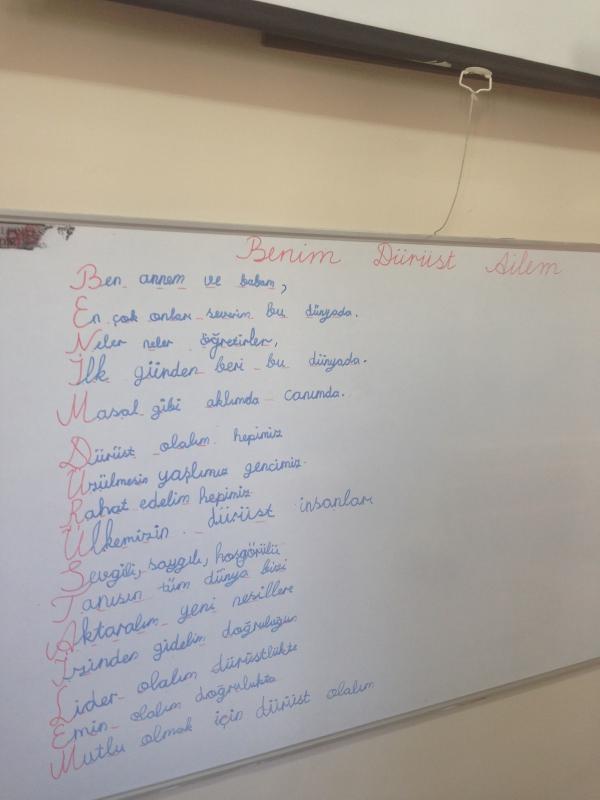 Benim Dürüst Ailem
Ben annem ve babam,
En çok onları severim bu dünyada.
Neler neler öğretirler,
İlk günden beri bu dünyada.
Masal gibi aklımda canımda.
Dürüst olalım hepimiz
Üzülmesin yaşlımız gencimiz.
Rahat edelim hepimiz
Ülkemizin dürüst insanları
Sevgili, saygılı, hoşgörülü
Tanısın tüm dünya bizi
Aktaralım yeni nesillere
İzinden gidelim doğruluğun
Lider olalım dürüstlükte
Emin olalım doğrulukta
Mutlu olmak için dürüst olalım